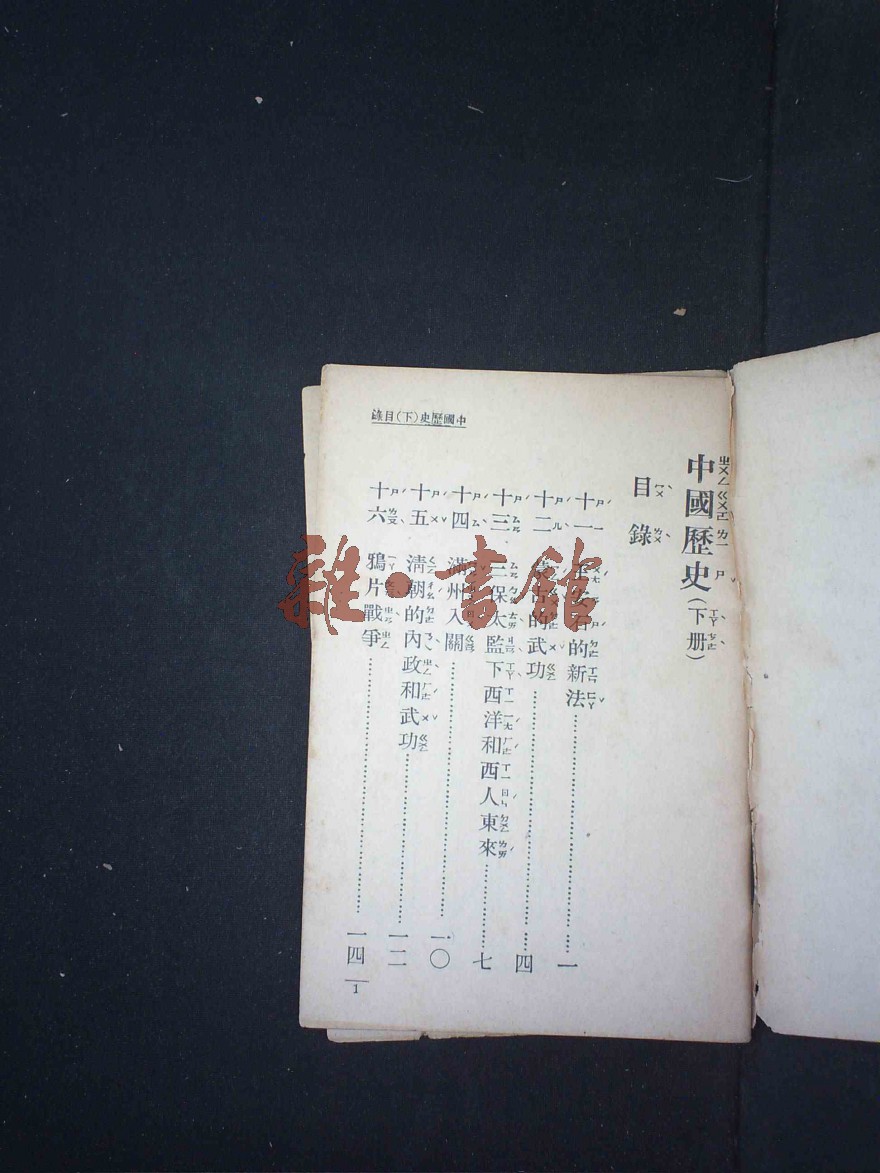 中國歷史(下)目錄
中國歷史(下册)
目錄
十一 王安石的新法……一
十二 蒙古的武功……四
十三 三保太監下西洋和西人東來……七
十四 滿州入關……一〇
十五 淸朝的內政和武功……一二
十六 鴉片戰爭……一四
1
雜·書館